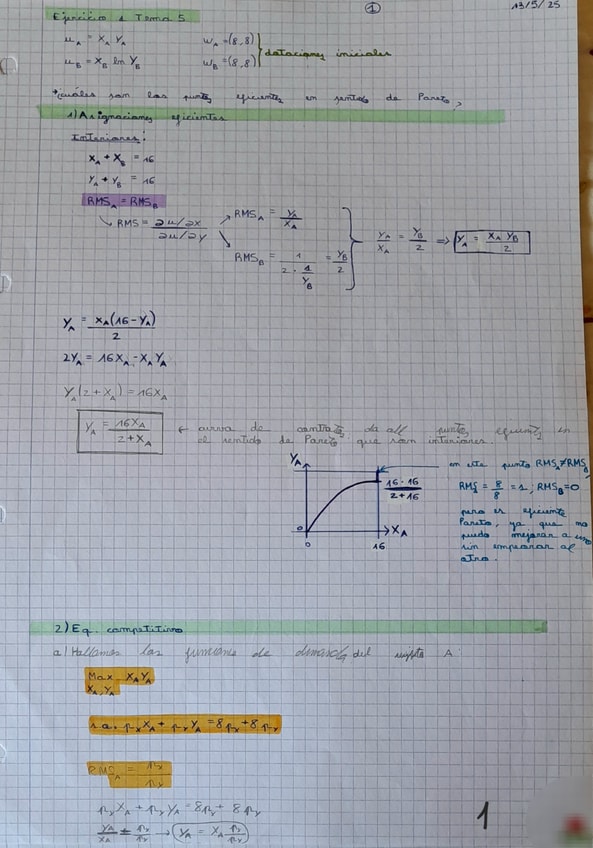 ① 13/5/25
Ejercicio 1 Tema 5
u_A = X_A Y_A   w_A = (8,8)
u_B = X_B ln Y_B   w_B = (8,8)   dotaciones iniciales
¿cuáles son los puntos eficientes en sentido de Pareto?
1) Asignaciones eficientes
Interiores:
X_A + X_B = 16
Y_A + Y_B = 16
RMS_A = RMS_B
↳ RMS = ∂u/∂x / ∂u/∂y
RMS_A = Y_A / X_A
RMS_B = 1 / (2 · 1/Y_B) = Y_B / 2
Y_A / X_A = Y_B / 2 ⇒ Y_A = X_A Y_B / 2
Y_A = X_A (16 - Y_A) / 2
2Y_A = 16X_A - X_A Y_A
Y_A (2 + X_A) = 16X_A
Y_A = 16X_A / (2 + X_A) ← curva de contratos, da all puntos eficientes en
el sentido de Pareto que son interiores.
Y_A
16 · 16 / (2 + 16)
0
0   16   X_A
en este punto RMS_A ≠ RMS_B
= 8/8 = 1 ; RMS_B = 0
pero es eficiente
Pareto, ya que no
puedo mejorar a uno
sin empeorar al
otro.
2) Eq. competitivo
a) Hallamos las funciones de demanda del sujeto A:
Max X_A Y_A
X_A, Y_A
s.a. p_x X_A + p_y Y_A = 8p_x + 8p_y
RMS_A = p_x / p_y
p_x X_A + p_y Y_A = 8p_x + 8p_y
Y_A / X_A = p_x / p_y → Y_A = X_A p_x / p_y
1